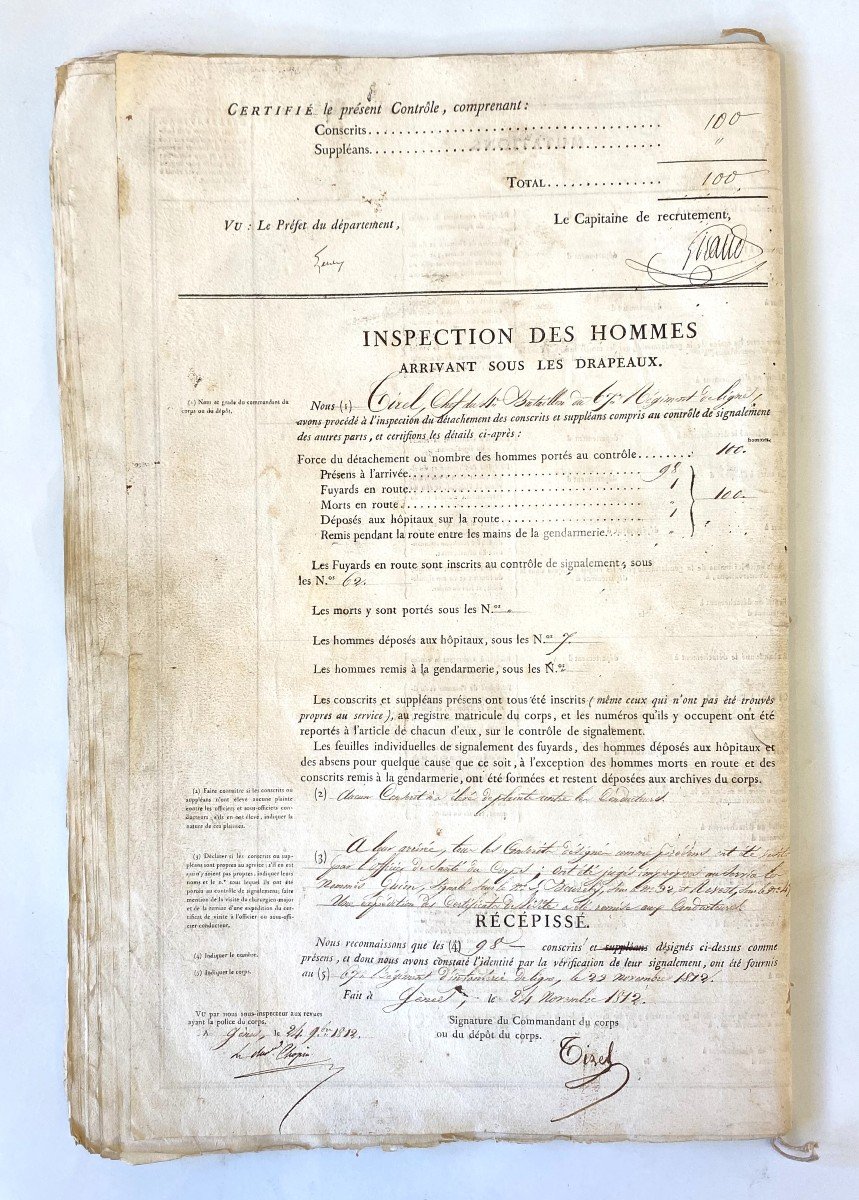 CERTIFIÉ le présent Contrôle, comprenant :
Conscrits........................................ 100
Suppléans........................................ "
TOTAL............... 100
VU : Le Préfet du département,
Le Capitaine de recrutement,
Giraud
INSPECTION DES HOMMES
ARRIVANT SOUS LES DRAPEAUX.
(1) Nom et grade du commandant du
corps ou du dépôt.
Nous (1) Tizel, Chef du 4e Bataillon du 67e Régiment de ligne,
avons procédé à l'inspection du détachement des conscrits et suppléans compris au contrôle de signalement
des autres parts, et certifions les détails ci-après :
hommes.
Force du détachement ou nombre des hommes portés au contrôle........ 100.
Présens à l'arrivée........................................ 98
Fuyards en route........................................ 1
Morts en route........................................ "
100.
Déposés aux hôpitaux sur la route.................... 1
Remis pendant la route entre les mains de la gendarmerie...... "
Les Fuyards en route sont inscrits au contrôle de signalement, sous
les N.os 62.
Les morts y sont portés sous les N.os "
Les hommes déposés aux hôpitaux, sous les N.os 7.
Les hommes remis à la gendarmerie, sous les N.os
Les conscrits et suppléans présens ont tous été inscrits (même ceux qui n'ont pas été trouvés
propres au service), au registre matricule du corps, et les numéros qu'ils y occupent ont été
reportés à l'article de chacun d'eux, sur le contrôle de signalement.
Les feuilles individuelles de signalement des fuyards, des hommes déposés aux hôpitaux et
des absens pour quelque cause que ce soit, à l'exception des hommes morts en route et des
conscrits remis à la gendarmerie, ont été formées et restent déposées aux archives du corps.
(2) Faire connaître si les conscrits ou
suppléans n'ont élevé aucune plainte
contre les officiers et sous-officiers con-
ducteurs ; s'ils en ont élevé, indiquer la
nature de ces plaintes.
(2) Aucun Conscrit n'a élevé de plainte contre les Conducteurs.
(3) Déclarer si les conscrits ou sup-
pléans sont propres au service : s'il en est
qui n'y soient pas propres, indiquer leurs
noms et le n.° sous lequel ils ont été
portés au contrôle de signalement ; faire
mention de la visite du chirurgien-major
et de la remise d'une expédition du cer-
tificat de visite à l'officier ou sous-offi-
cier conducteur.
(3) A leur arrivée, tous les Conscrits désignés comme présens ont été
par l'officier de Santé du Corps ; ont été jugés impropres au Service le
Nommés Guein, Signalé Sous le n.° 5, Sous le n.° 32, et
Une expédition des Certificats de visite a été remise aux Conducteurs
RÉCÉPISSÉ.
(4) Indiquer le nombre.
(5) Indiquer le corps.
Nous reconnaissons que les (4) 98 conscrits et suppléans désignés ci-dessus comme
présens, et dont nous avons constaté l'identité par la vérification de leur signalement, ont été fournis
au (5) 67e Régiment d'infanterie de ligne, le 22 novembre 1812.
Fait à Gênes, le 24 Novembre 1812.
VU par nous sous-inspecteur aux revues
ayant la police du corps.
A Gênes, le 24 9bre 1812.
Chopin
Signature du Commandant du corps
ou du dépôt du corps.
Tizel